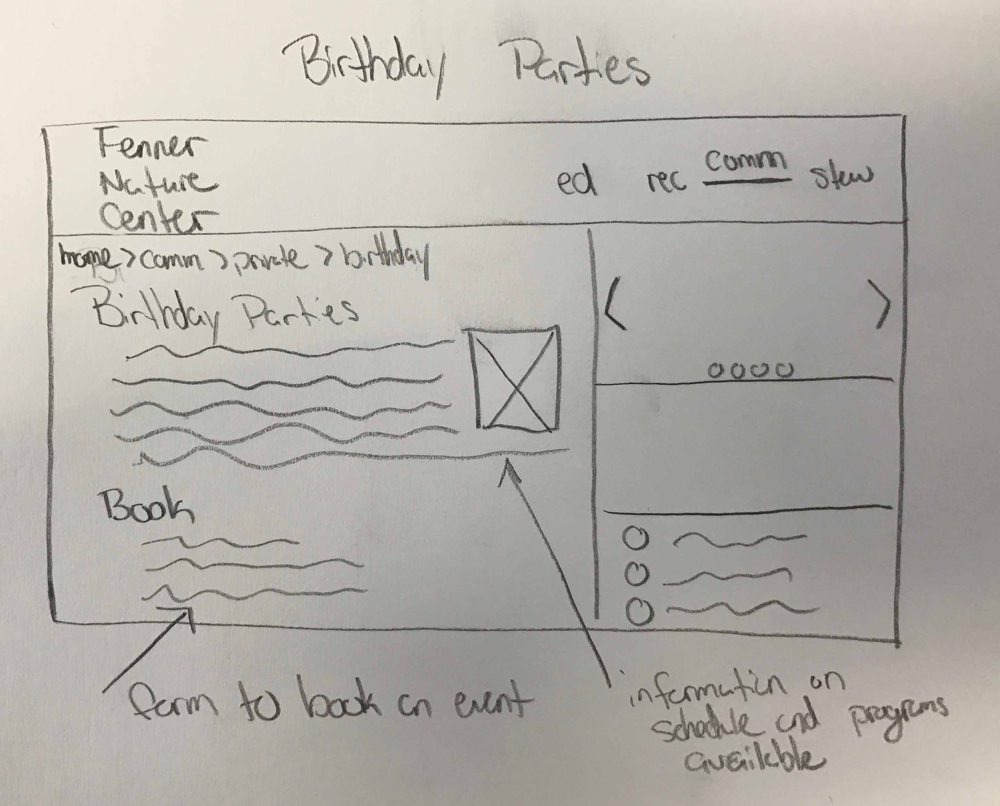 Birthday Parties
Fenner
Nature
Center
ed rec comm stew
home > comm > private > birthday
Birthday Parties
Book
form to book an event
information on
schedule and programs
available